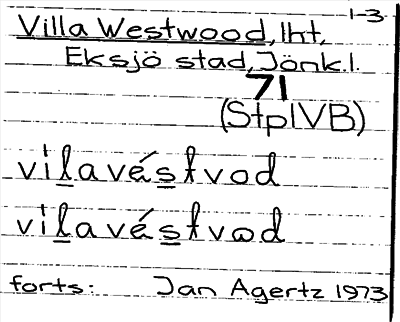 1-3
Villa Westwood, lht,
Eksjö stad, Jönk.l.
71
(StplVB)
vil̲avés̲tvod
vil̲avés̲tvod
forts: Jan Agertz 1973